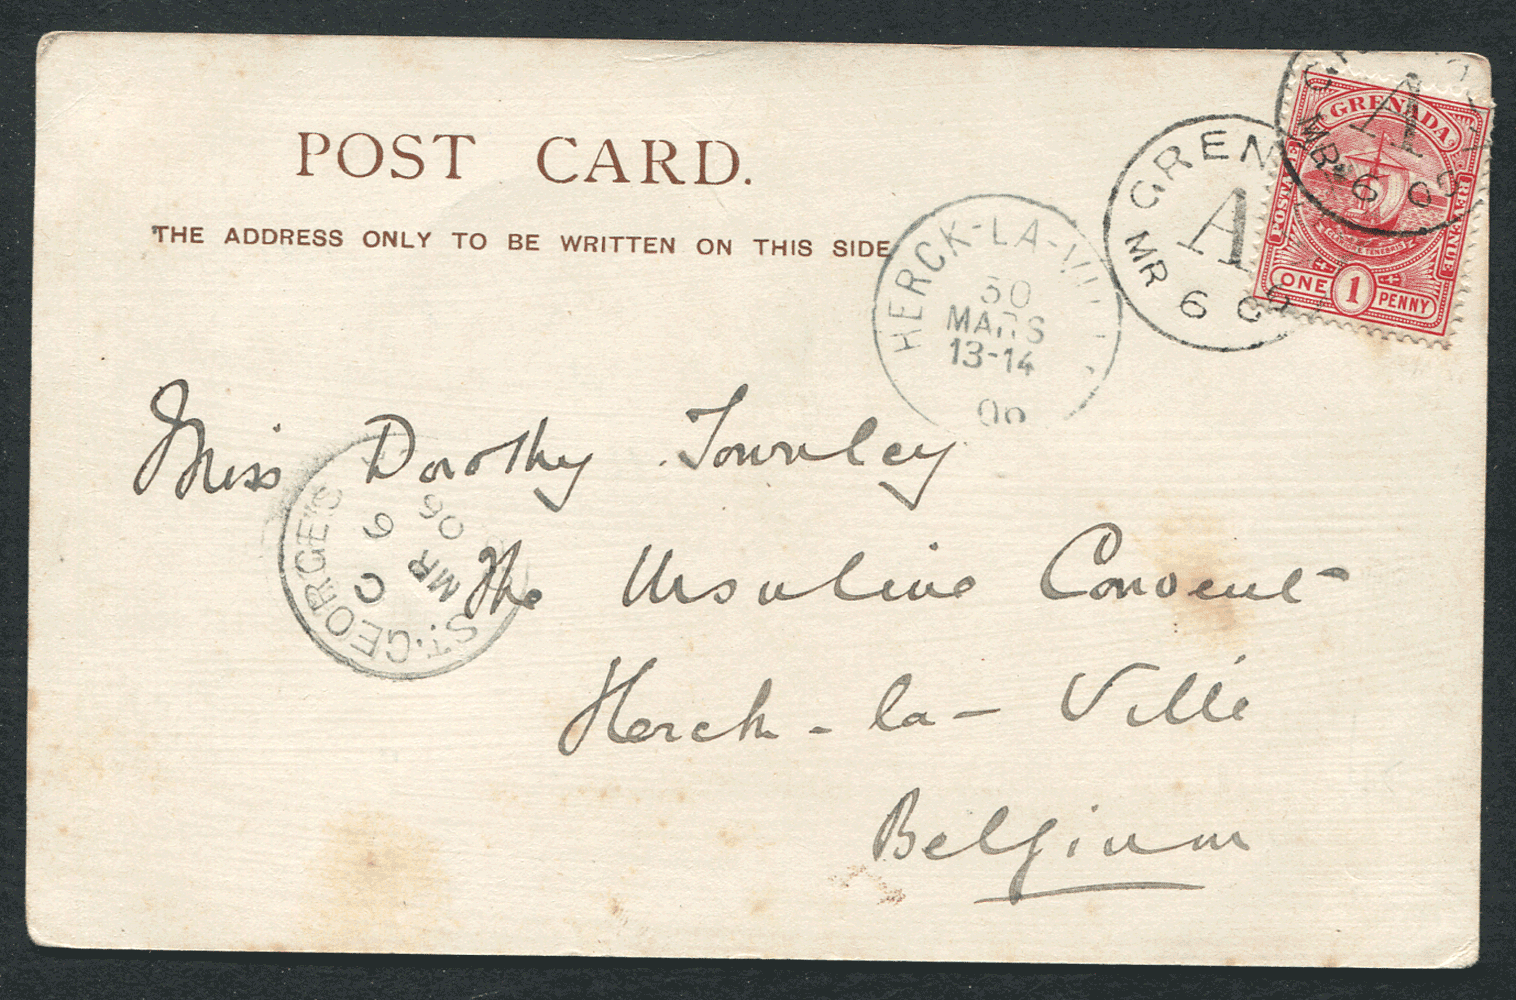 POST CARD.
THE ADDRESS ONLY TO BE WRITTEN ON THIS SIDE
GRENADA
POSTAGE & REVENUE
ONE 1 PENNY
A
MR 6 05
GREN
A
MR 6 05
HERCK-LA-VILL
30
MARS
13-14
Miss Dorothy Townley
The Ursuline Convent
Herck-la-Ville
Belgium
ST. GEORGE'S
C
6
MR
06